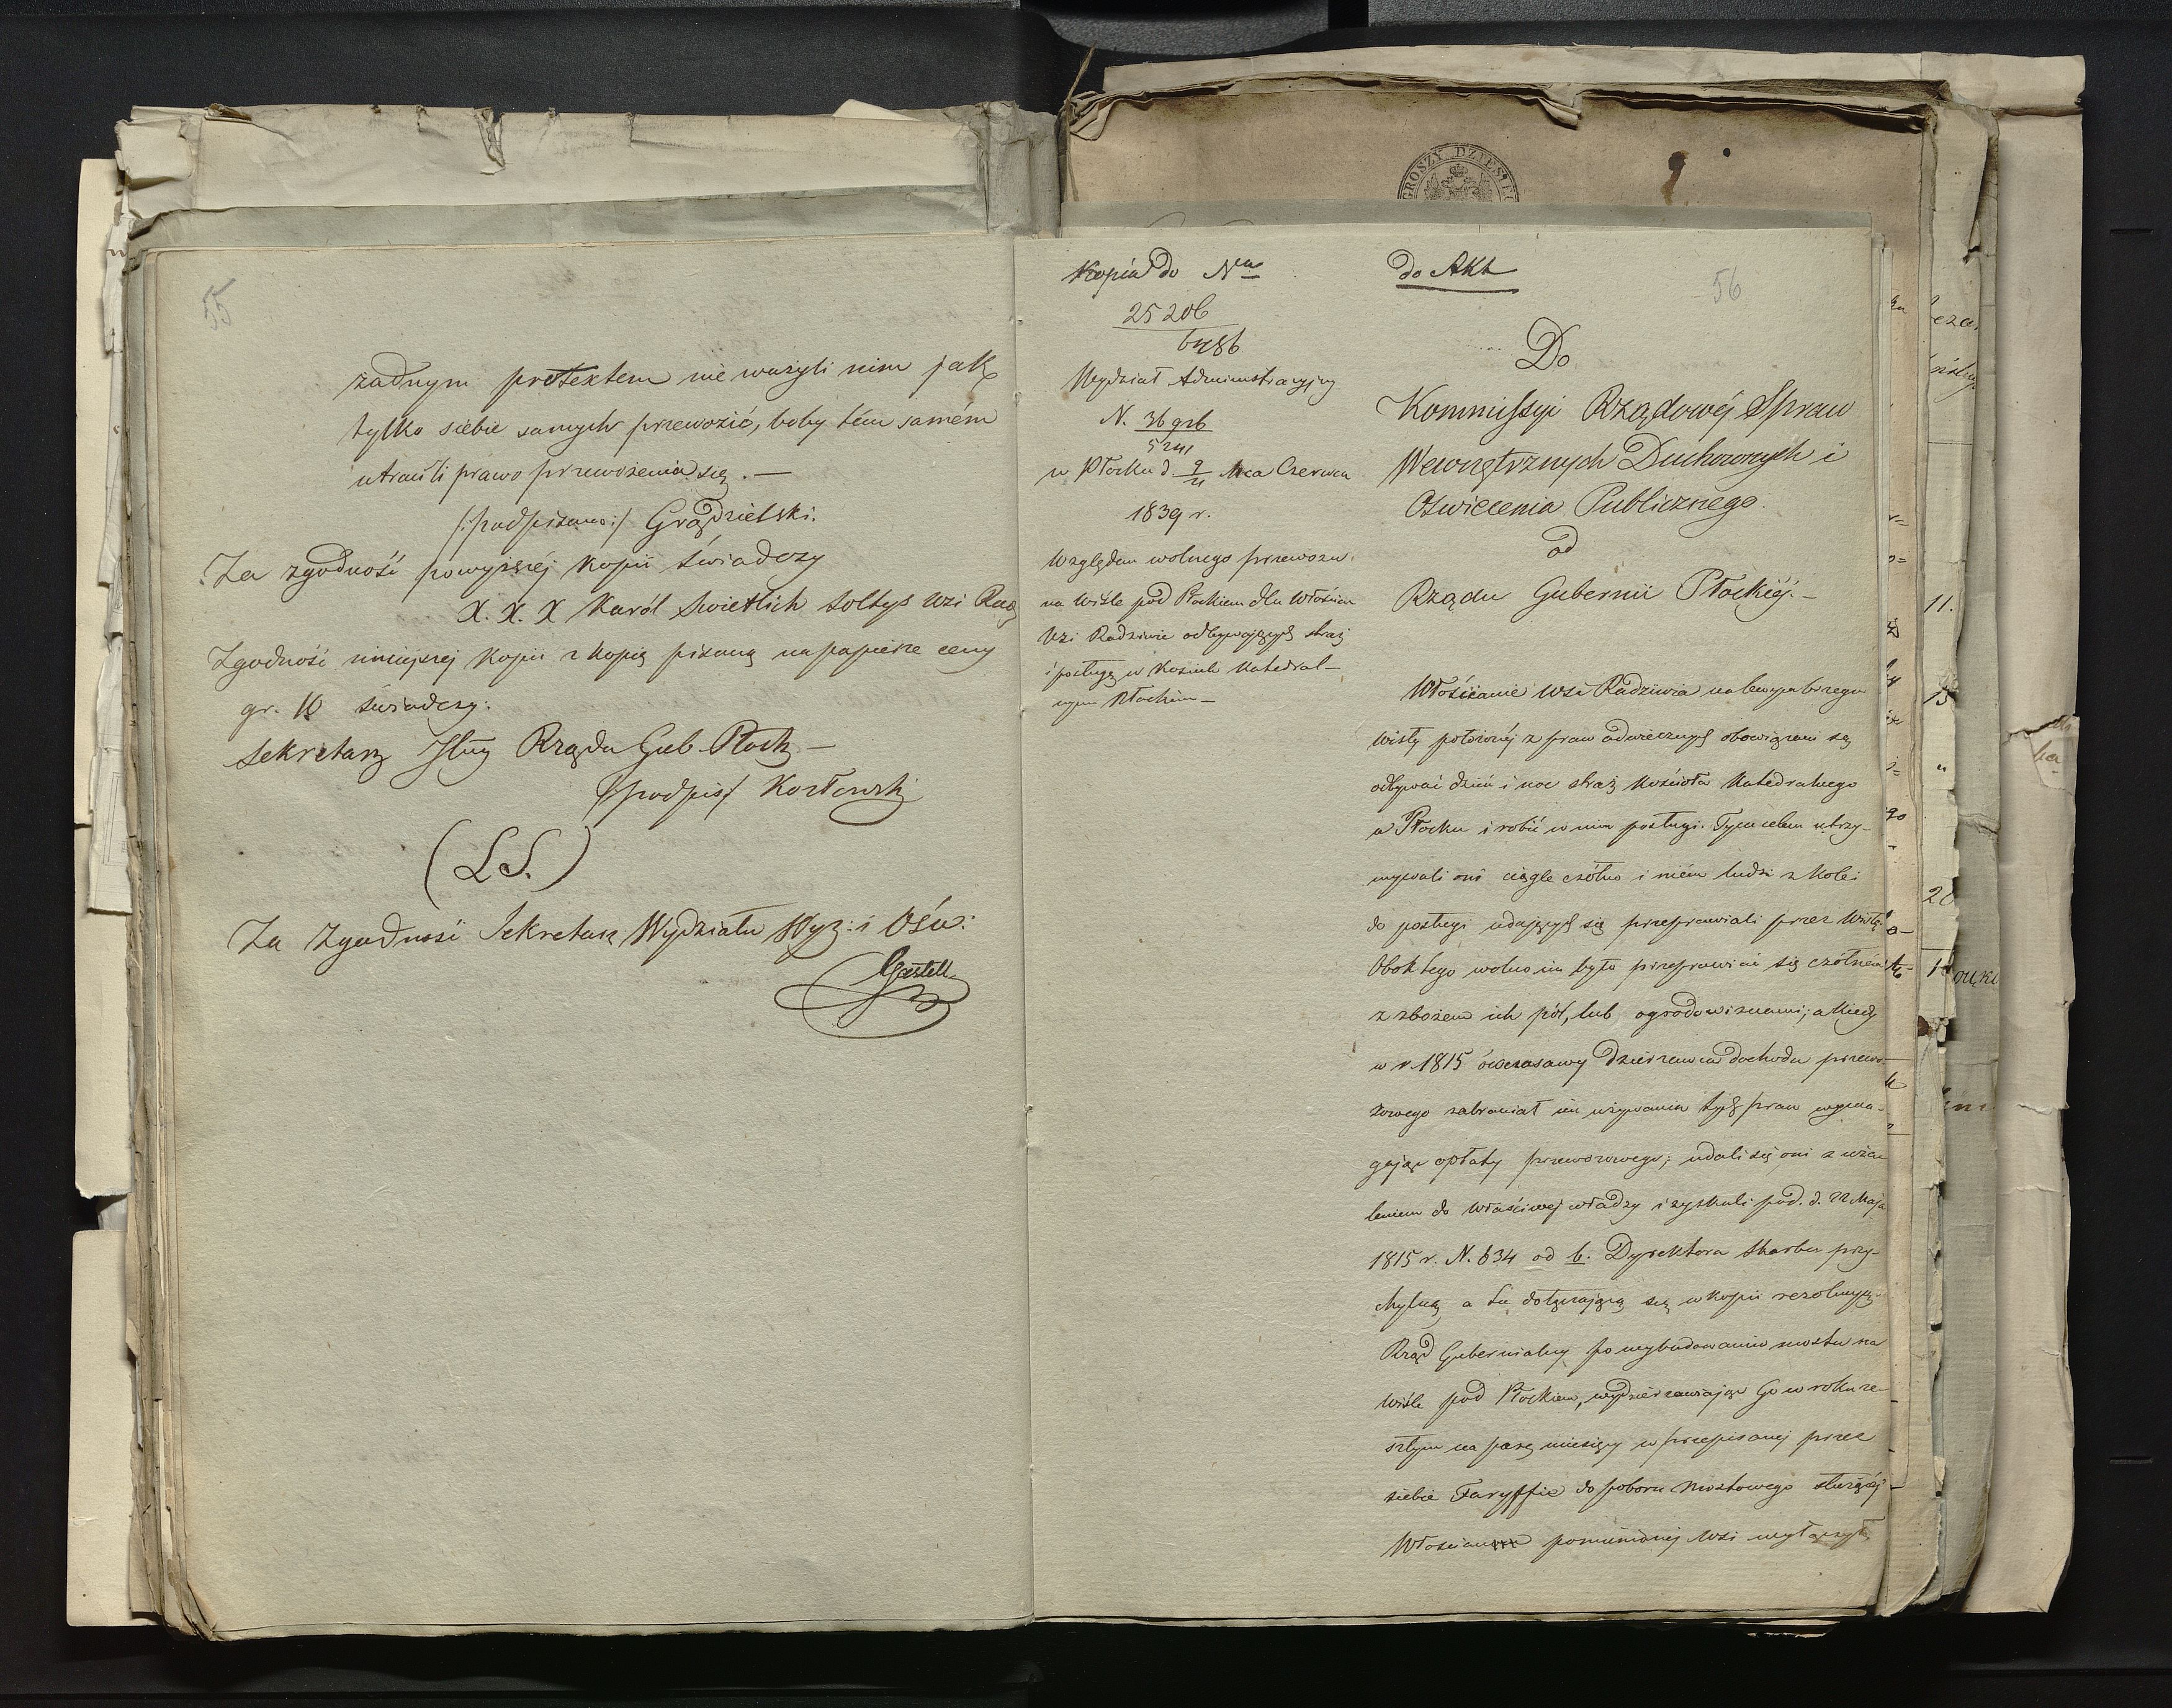 55
żadnym pretextem nie ważyli nim jak
tylko siebie samych przewozić, boby tém samém
utracili prawo przewożenia się. —
/:podpisano:/ Grądzielski.
Za zgodność powyższéj kopii świadczy
X. X. X Karól Swietlich sołtys wsi Rad
Zgodność niniejszej kopii z kopią pisaną na papierze ceny
gr. 10 świadczy:
Sekretarz Jlny Rządu Gub. Płock —
/podpis/ Kozłowski
(L.S.)
Za Zgodność Sekretarz Wydziału Wyz: i Ośw:
Kopia do Nru
25206
6486
Wydział Administracyjny
N. 36926
w Płocku d. 9/21 Mca Czerwca
1839 r.
Względem wolnego przewozu
na Wiśle pod Płockiem dla Włościan
Wsi Radziwie odbywających straż
i posługę w Kościele Katedral-
nym Płockim —
do Akt
56
Do
Kommissyi Rządowéj Spraw
Wewnętrznych Duchownych i
Oświecenia Publicznego.
od
Rządu Gubernii Płockiéj. —
Włościanie wsi Radziwia na lewym brzegu
Wisły położonéj z praw odwiecznych obowiązani są
odbywać dzień i noc straż Kościoła Katedralnego
w Płocku i robić w nim posługi. Tym celem utrzy-
mywali oni ciągle czółno i niém ludzi z kolei
do posługi udających się przeprawiali przez Wisłę
Obok tego wolno im było przeprawiać się czółném
z zbożem ich pól, lub ogrodowiznami; a kiedy
w r. 1815 ówczasowy Dzierzawca dochodu przewo-
zowego zabraniał im używania tych praw wyma-
gając opłaty przewozowego; udali się oni z uża-
leniem do właściwej władzy i zyskali pod. d. 22 Maja
1815 r. N. 634 od b. Dyrektora Skarbu przy-
chylną a tu dołączającą się w kopii rezolucyą.
Rząd Gubernialny po wybudowaniu mostu na
Wiśle pod Płockiem, wydzierzawiając Go w roku ze-
szłym na parę miesięcy w przepisanej przez
siebie Taryffie do poboru mostowego służącéj
Włościan pomienionej wsi wyłączył